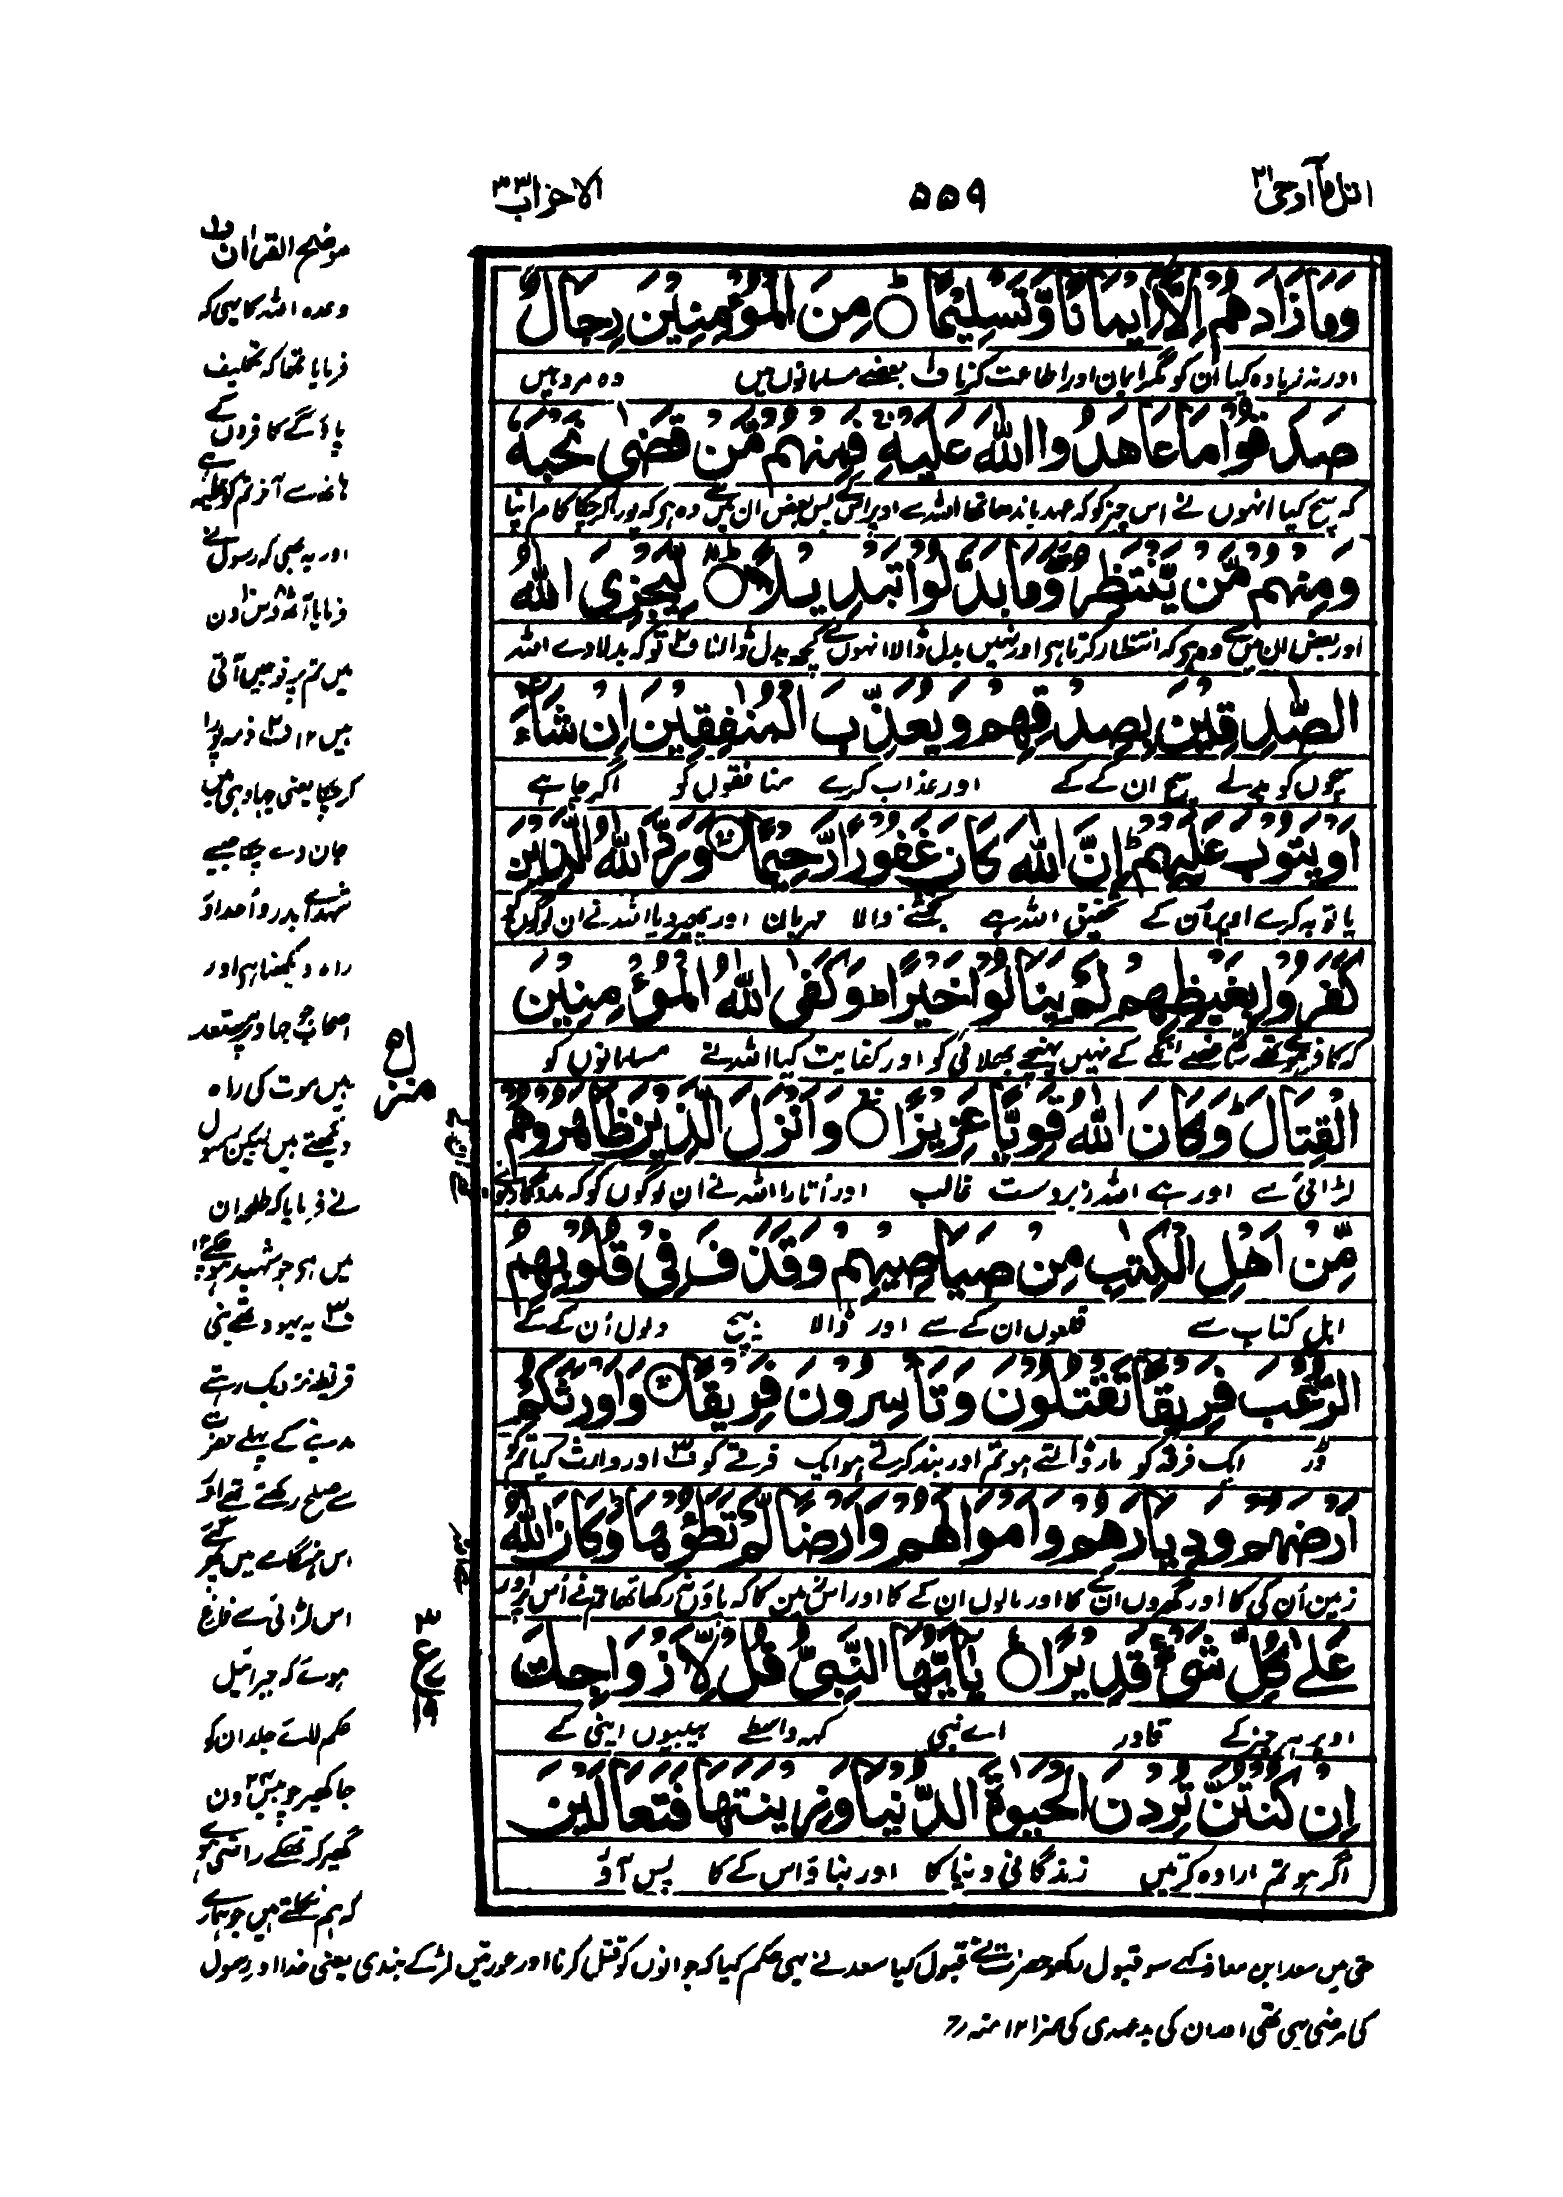 اتل ما اوحی ۲۱
۵۵۹
الاحزاب ۳۳
وَمَا زَادَهُمْ اِلَّا اِيْمَانًا وَّتَسْلِيْمًا ۞ مِنَ الْمُؤْمِنِيْنَ رِجَالٌ
اور نہ زیادہ کیا ان کو مگر ایمان اور اطاعت کرنا ف۱ بعضے مسلمانوں میں وہ مرد ہیں
صَدَقُوْا مَا عَاهَدُوا اللّٰهَ عَلَيْهِ ۚ فَمِنْهُمْ مَّنْ قَضٰى نَحْبَهٗ
کہ سچ کیا انہوں نے اس چیز کو کہ عہد باندھا تھا اللہ سے اوپر اسکے پس بعض ان میں سے وہ ہی کہ پورا کر چکا کام اپنا
وَمِنْهُمْ مَّنْ يَّنْتَظِرُ ۖ وَمَا بَدَّلُوْا تَبْدِيْلًا ۞ لِّيَجْزِيَ اللّٰهُ
اور بعض ان میں سے وہ ہی کہ انتظار کرتا ہی اور نہیں بدل ڈالا انہوں نے کچھ بدل ڈالنا ف۲ تو کہ بدلا دے اللہ
الصّٰدِقِيْنَ بِصِدْقِهِمْ وَيُعَذِّبَ الْمُنٰفِقِيْنَ اِنْ شَآءَ
سچوں کو بدلے سچ ان کے کے اور عذاب کرے منافقوں کو اگر چاہے
اَوْ يَتُوْبَ عَلَيْهِمْ ۭ اِنَّ اللّٰهَ كَانَ غَفُوْرًا رَّحِيْمًا ۞ وَرَدَّ اللّٰهُ الَّذِيْنَ
یا توبہ کرے اوپر اُن کے تحقیق اللہ ہے بخشنے والا مہربان اور پھیر دیا اللہ نے ان لوگوں کو
كَفَرُوْا بِغَيْظِهِمْ لَمْ يَنَالُوْا خَيْرًا ۭ وَكَفَى اللّٰهُ الْمُؤْمِنِيْنَ
کہ کافر ہوئے تھے ساتھ غصے انکے کے نہیں پہنچے بھلائی کو اور کفایت کیا اللہ نے مسلمانوں کو
الْقِتَالَ ۭ وَكَانَ اللّٰهُ قَوِيًّا عَزِيْزًا ۞ وَاَنْزَلَ الَّذِيْنَ ظَاهَرُوْهُمْ
لڑائی سے اور ہے اللہ زبردست غالب اور اُتارا اللہ نے ان لوگوں کو کہ مددگار ہوئے
مِّنْ اَهْلِ الْكِتٰبِ مِنْ صَيَاصِيْهِمْ وَقَذَفَ فِيْ قُلُوْبِهِمُ
اہل کتاب سے قلعوں ان کے سے اور ڈالا بیچ دلوں اُن کے کے
الرُّعْبَ فَرِيْقًا تَقْتُلُوْنَ وَتَاْسِرُوْنَ فَرِيْقًا ۞ وَاَوْرَثَكُمْ
ڈر ایک فرقہ کو مار ڈالتے ہو تم اور بند کرتے ہو ایک فرقے کو ف۳ اور وارث کیا تم کو
اَرْضَهُمْ وَدِيَارَهُمْ وَاَمْوَالَهُمْ وَاَرْضًا لَّمْ تَطَئُوْهَا ۭ وَكَانَ اللّٰهُ
زمین اُن کی کا اور گھروں ان کے کا اور مالوں ان کے کا اور اس زمین کا کہ پاؤں نہ رکھا تھا تم نے اُس پر اور
عَلٰى كُلِّ شَيْءٍ قَدِيْرًا ۞ يٰٓاَيُّهَا النَّبِيُّ قُلْ لِّاَزْوَاجِكَ
اوپر ہر چیز کے قادر اے نبی کہہ واسطے بیبیوں اپنی کے
اِنْ كُنْتُنَّ تُرِدْنَ الْحَيٰوةَ الدُّنْيَا وَزِيْنَتَهَا فَتَعَالَيْنَ
اگر ہو تم ارادہ کرتیں زندگانی دنیا کا اور بناؤ اس کے کا پس آؤ
موضح القرآن ف۱
وعدہ اللہ کا یہی کہ
فرمایا تھا کہ تکلیف
پاؤگے کافروں کے
ہاتھ سے آخر تم کو غلبہ ہے
اور یہ بھی کہ رسول نے
فرمایا آٹھ دس دن
میں تم پر فوجیں آتی
ہیں ۱۲ ف۲ ذمہ پورا
کر چکا یعنی جہاد ہی میں
جان دے چکا جیسے
شہدائے بدر و اُحد اور
راہ دیکھتا ہی اور
اصحاب جو جہاد پر مستعد
ہیں موت کی راہ
دیکھتے ہیں لیکن رسول
نے فرمایا کہ طلحہ ان
میں ہی جو شہید ہو چکے ۱۲
ف۳ یہ یہود تھے بنی
قریظہ نزدیک رہتے
مدینے کے پہلے حضرت
سے صلح رکھتے تھے اور
اس ہنگامے میں پھر گئے
اس لڑائی سے فارغ
ہوئے کہ جبرائیل
حکم لائے جلد ان کو
جا گھیر چوبیس ۲۴ دن
گھیر کر تھکے راضی ہوئے
کہ ہم نکلتے ہیں جو ہمارے
منزل ۵
۳
ع
۱۹
حق میں سعد ابن معاذ کہے سو قبول رکھو حضرت نے قبول کیا سعد نے یہی حکم کیا کہ جوانوں کو قتل کرنا اور عورتیں لڑکے بندی یعنی خدا اور رسول
کی مرضی یہی تھی اور ان کی بد عہدی کی سزا ۱۲ منہ رح